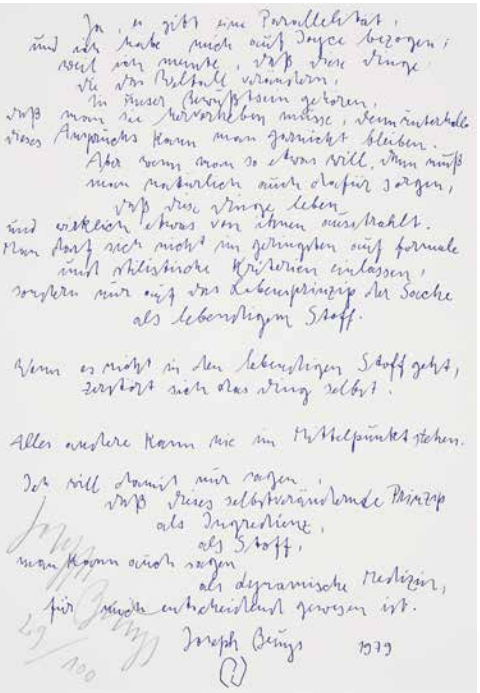 Ja, es gibt eine Parallelität,
und ich habe mich auf Joyce bezogen,
weil ich meinte, daß diese Dinge,
die das Weltall verändern,
in unser Bewußtsein gehören,
daß man sie hervorheben müsse, denn unterhalb
dieses Anspruchs kann man garnicht bleiben.
Aber wenn man so etwas will, dann muß
man natürlich auch dafür sorgen,
daß diese Dinge leben
und wirklich etwas von ihnen ausstrahlt.
Man darf sich nicht im geringsten auf formale
und stilistische Kriterien einlassen,
sondern nur auf das Lebensprinzip der Sache
als lebendigem Stoff.
Wenn es nicht in den lebendigen Stoff geht,
zerstört sich das Ding selbst.
Alles andere kann nie im Mittelpunkt stehen.
Ich will damit nur sagen,
daß dieses selbstverändernde Prinzip
als Ingredienz,
als Stoff,
man kann auch sagen
als dynamische Medizin,
für mich entscheidend gewesen ist.
Joseph Beuys 1979
Joseph Beuys
29/100